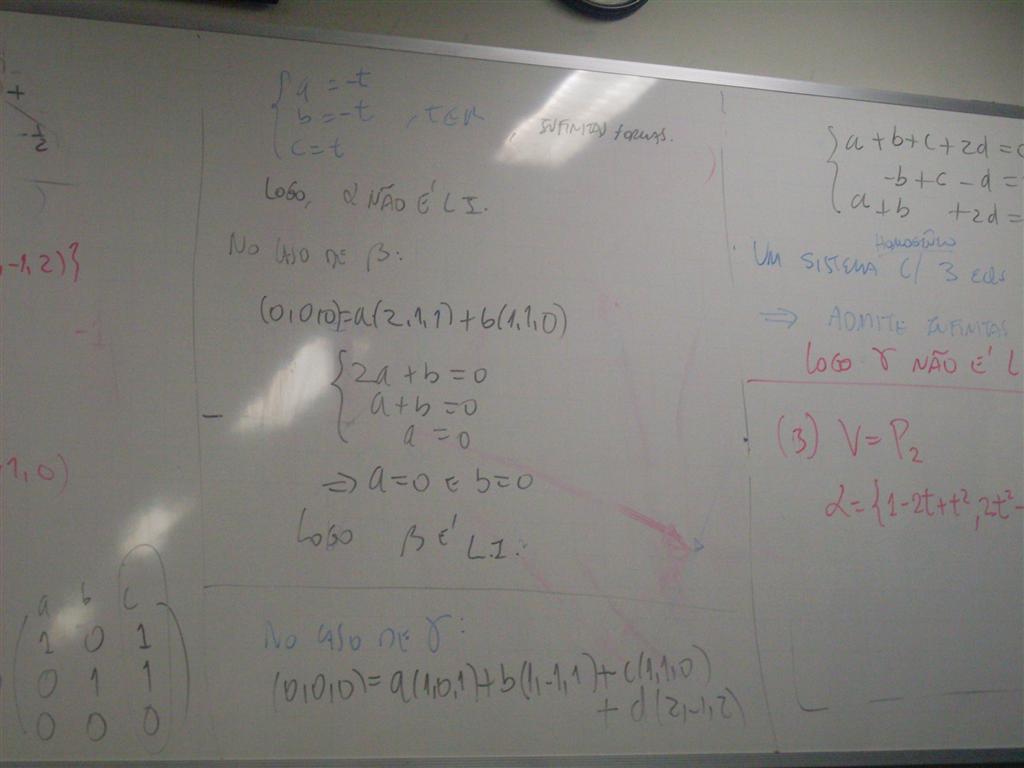 +
-1/2
-1,2)}
-1
1,0)
a b c
1 0 1
0 1 1
0 0 0
{a = -t
b = -t , t ∈ R
c = t
INFINITAS FORMAS.
LOGO, α NÃO É LI.
NO CASO DE β:
(0,0,0)=a(2,1,1)+b(1,1,0)
{2a + b = 0
a + b = 0
a = 0
⇒ a=0 E b=0
LOGO β É L.I.
NO CASO DE γ:
(0,0,0)=a(1,0,1)+b(1,-1,1)+c(1,1,0)
+ d(2,-1,2)
{a + b + c + 2d =
-b + c - d =
a + b + 2d =
HOMOGÊNEO
UM SISTEMA C/ 3 EQS
⇒ ADMITE INFINITAS
LOGO γ NÃO É L
(3) V = P2
α={1-2t+t², 2t²-